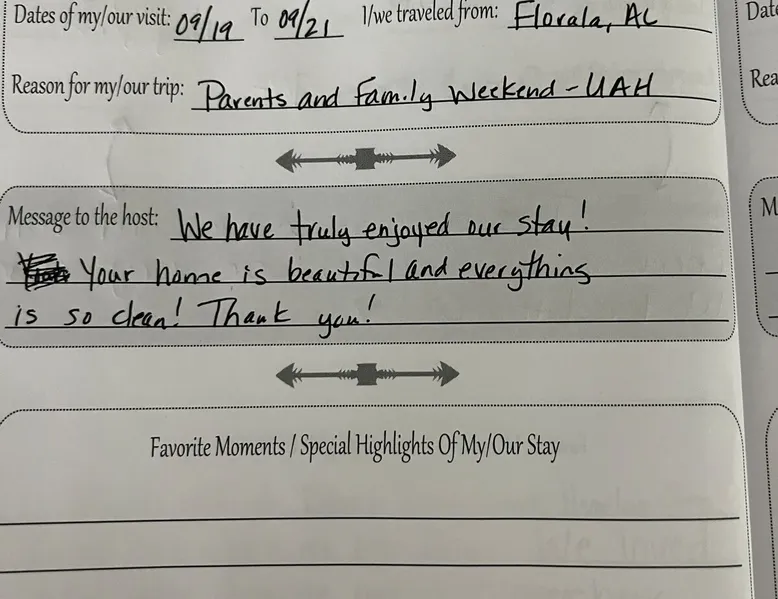 Dates of my/our visit: 09/19 To 09/21 I/we traveled from: Florala, AL
Reason for my/our trip: Parents and Family Weekend - UAH
Message to the host: We have truly enjoyed our stay!
Your home is beautiful and everything
is so clean! Thank you!
Favorite Moments / Special Highlights Of My/Our Stay
Date
Rea
M